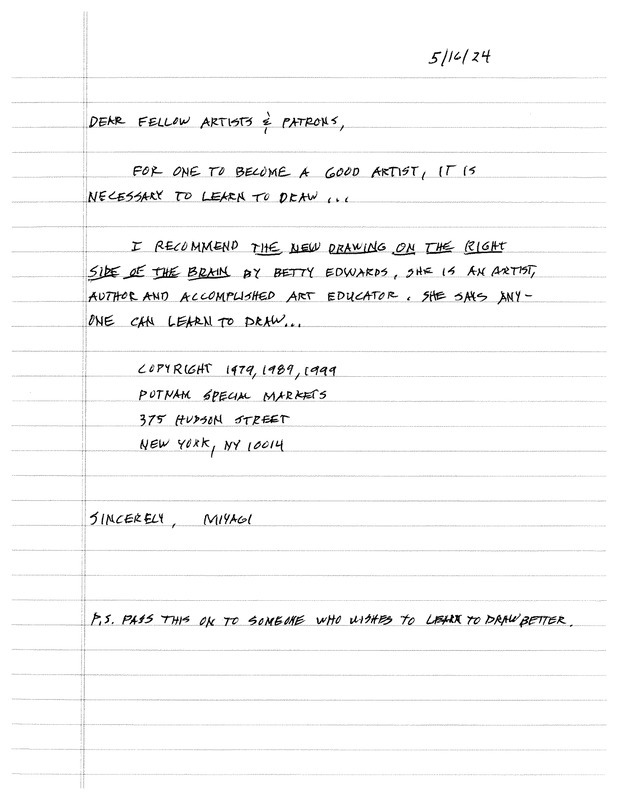 5/16/24
DEAR FELLOW ARTISTS & PATRONS,
FOR ONE TO BECOME A GOOD ARTIST, IT IS
NECESSARY TO LEARN TO DRAW ...
I RECOMMEND THE NEW DRAWING ON THE RIGHT
SIDE OF THE BRAIN BY BETTY EDWARDS. SHE IS AN ARTIST,
AUTHOR AND ACCOMPLISHED ART EDUCATOR. SHE SAYS ANY-
ONE CAN LEARN TO DRAW...
COPYRIGHT 1979, 1989, 1999
PUTNAM SPECIAL MARKETS
375 HUDSON STREET
NEW YORK, NY 10014
SINCERELY, MIYAGI
P.S. PASS THIS ON TO SOMEONE WHO WISHES TO LEARN TO DRAW BETTER.